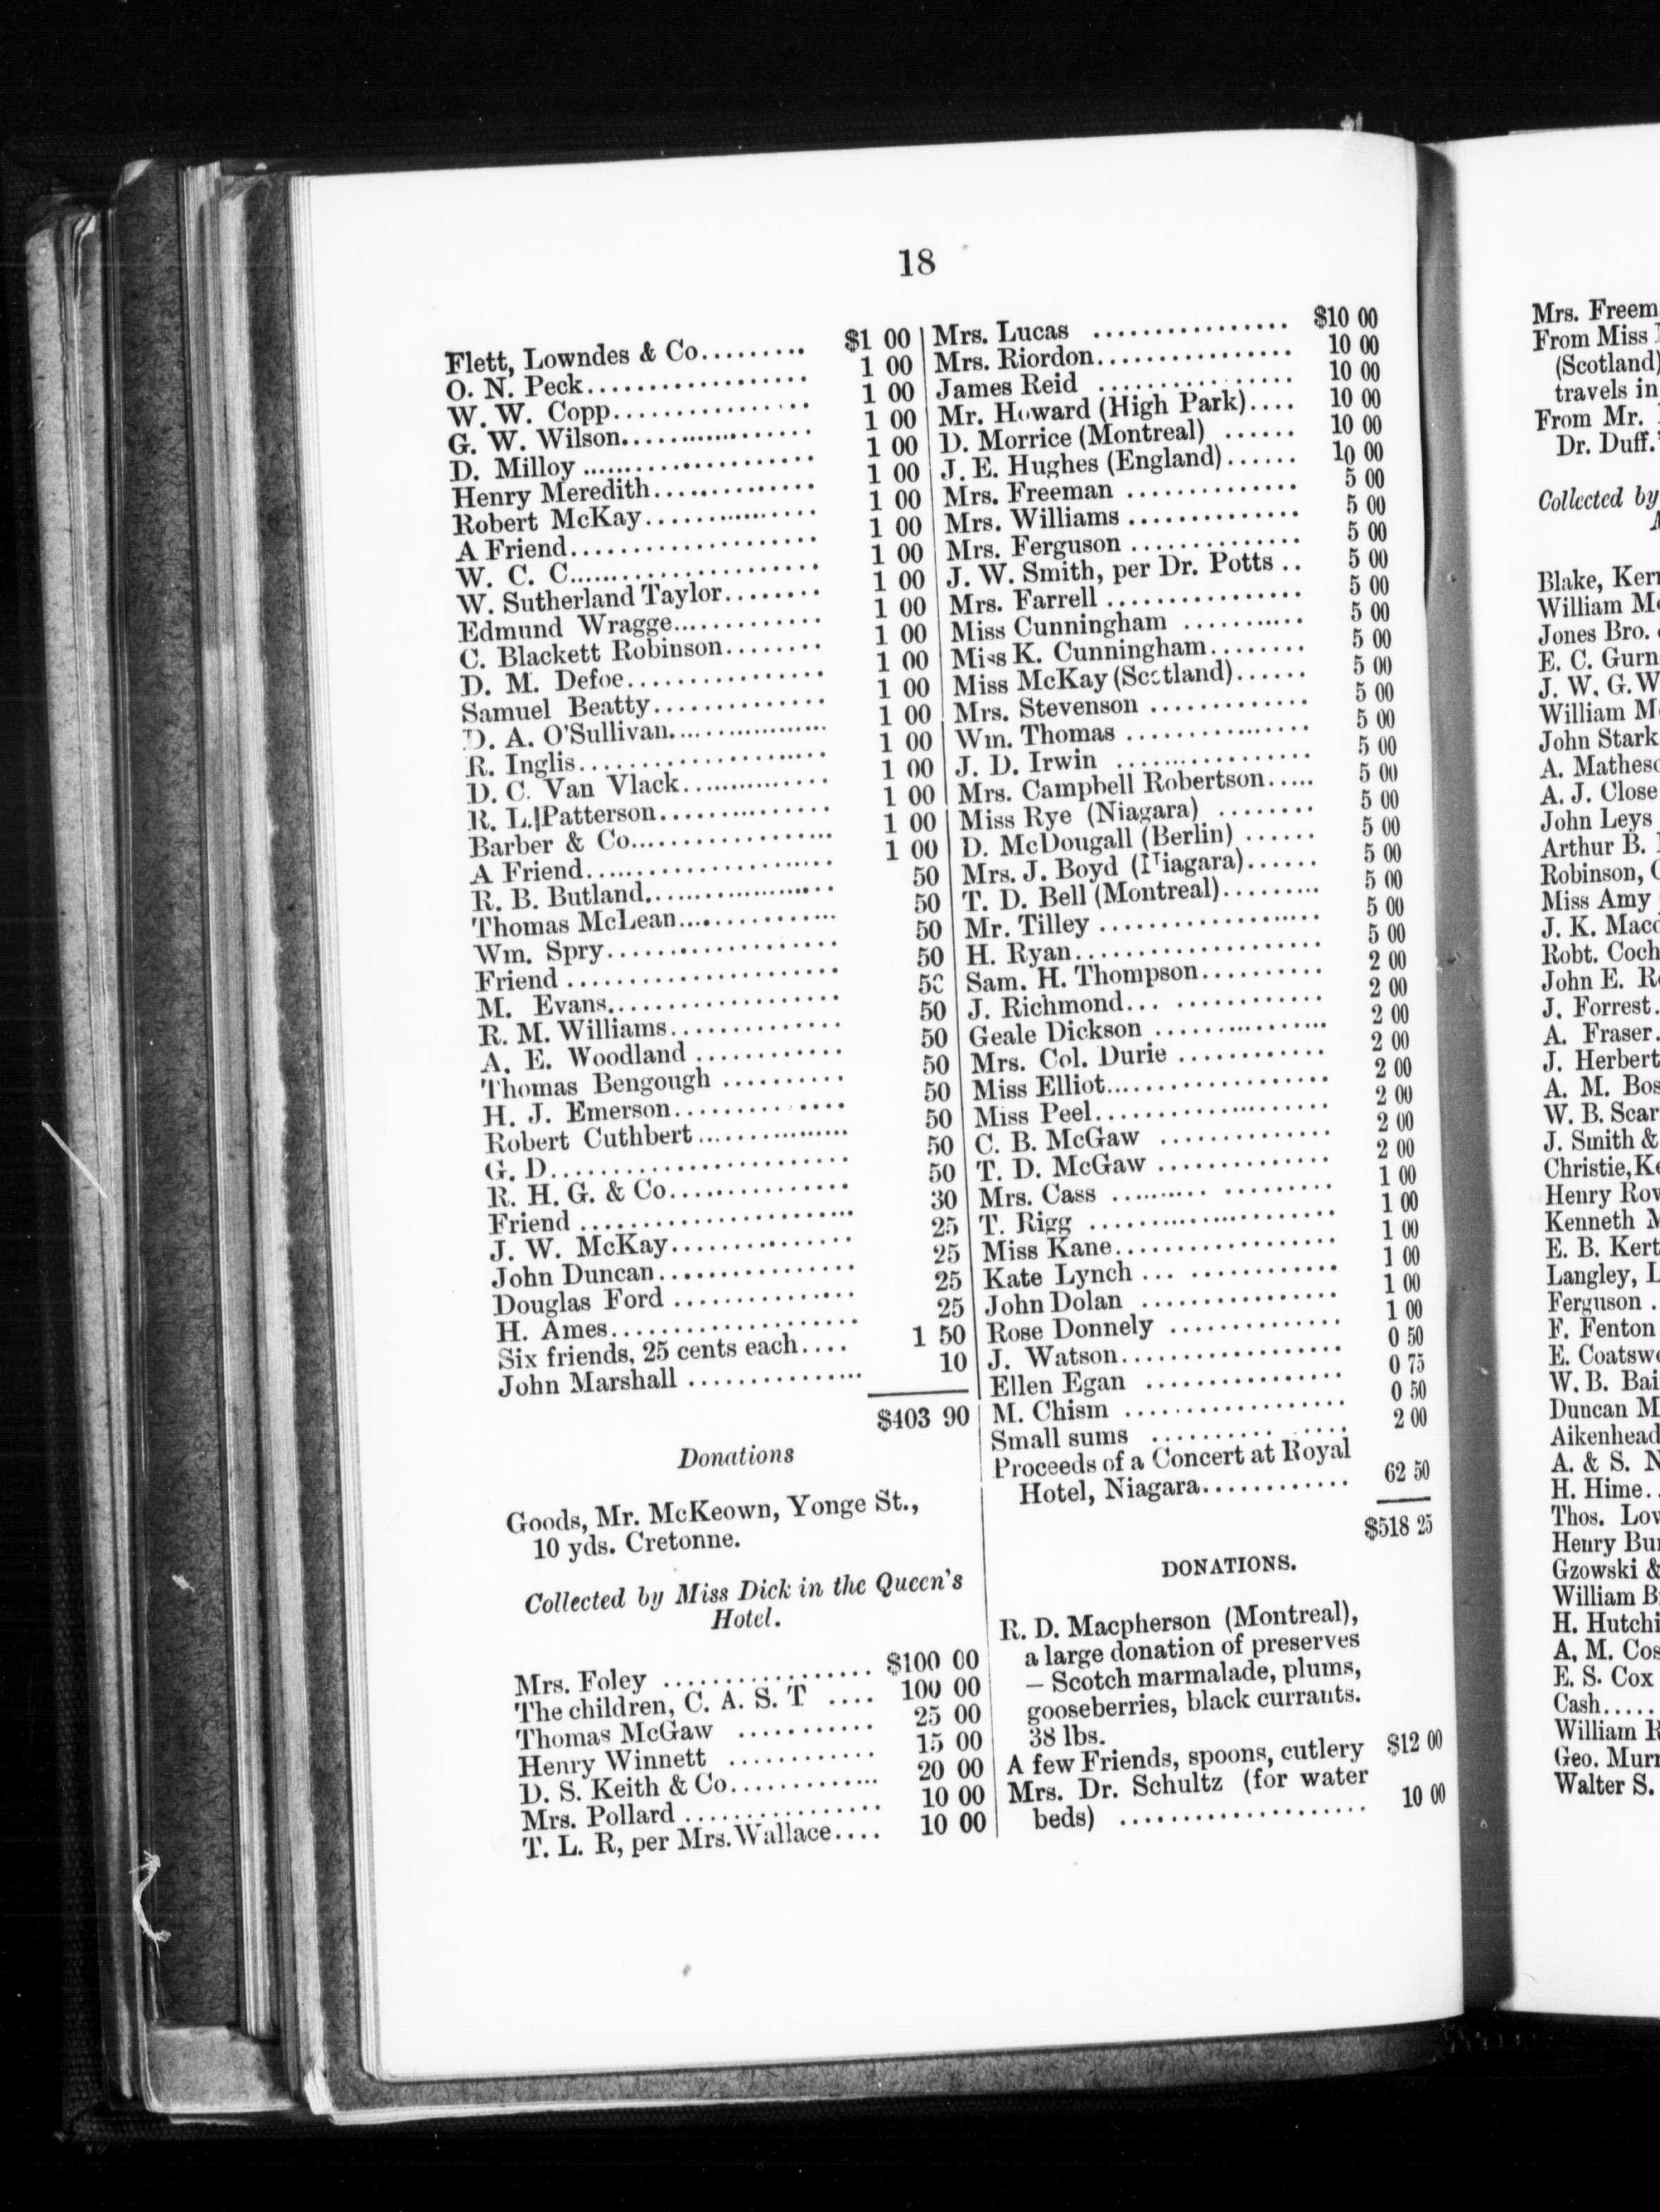 18
Flett, Lowndes & Co......... $1 00
O. N. Peck.................. 1 00
W. W. Copp................ 1 00
G. W. Wilson................ 1 00
D. Milloy .................... 1 00
Henry Meredith.............. 1 00
Robert McKay............... 1 00
A Friend..................... 1 00
W. C. C...................... 1 00
W. Sutherland Taylor........ 1 00
Edmund Wragge............. 1 00
C. Blackett Robinson........ 1 00
D. M. Defoe................ 1 00
Samuel Beatty.............. 1 00
D. A. O'Sullivan................ 1 00
R. Inglis.................... 1 00
D. C. Van Vlack............. 1 00
R. L. Patterson.............. 1 00
Barber & Co................. 1 00
A Friend..................... 1 00
R. B. Butland................ 50
Thomas McLean.............. 50
Wm. Spry................... 50
Friend ...................... 50
M. Evans.................... 50
R. M. Williams.............. 50
A. E. Woodland ............ 50
Thomas Bengough .......... 50
H. J. Emerson.............. 50
Robert Cuthbert.............. 50
G. D......................... 50
R. H. G. & Co............... 50
Friend ...................... 30
J. W. McKay................ 25
John Duncan................ 25
Douglas Ford ............... 25
H. Ames.................... 25
Six friends, 25 cents each.... 1 50
John Marshall ............... 10
$403 90
Donations
Goods, Mr. McKeown, Yonge St.,
10 yds. Cretonne.
Collected by Miss Dick in the Queen's
Hotel.
Mrs. Foley .................. $100 00
The children, C. A. S. T .... 100 00
Thomas McGaw ........... 25 00
Henry Winnett ............ 15 00
D. S. Keith & Co............. 20 00
Mrs. Pollard ................ 10 00
T. L. R, per Mrs. Wallace.... 10 00
Mrs. Lucas ................ $10 00
Mrs. Riordon................ 10 00
James Reid ................ 10 00
Mr. Howard (High Park).... 10 00
D. Morrice (Montreal) ...... 10 00
J. E. Hughes (England)...... 10 00
Mrs. Freeman .............. 5 00
Mrs. Williams .............. 5 00
Mrs. Ferguson .............. 5 00
J. W. Smith, per Dr. Potts .. 5 00
Mrs. Farrell ................ 5 00
Miss Cunningham .......... 5 00
Miss K. Cunningham........ 5 00
Miss McKay (Scotland)...... 5 00
Mrs. Stevenson ............. 5 00
Wm. Thomas ............... 5 00
J. D. Irwin ................ 5 00
Mrs. Campbell Robertson..... 5 00
Miss Rye (Niagara) ........ 5 00
D. McDougall (Berlin) ...... 5 00
Mrs. J. Boyd (Niagara)...... 5 00
T. D. Bell (Montreal)......... 5 00
Mr. Tilley .................. 5 00
H. Ryan.................... 5 00
Sam. H. Thompson.......... 2 00
J. Richmond... ............ 2 00
Geale Dickson ............... 2 00
Mrs. Col. Durie ............ 2 00
Miss Elliot.................. 2 00
Miss Peel................... 2 00
C. B. McGaw .............. 2 00
T. D. McGaw .............. 2 00
Mrs. Cass ......... ......... 1 00
T. Rigg .................... 1 00
Miss Kane.................. 1 00
Kate Lynch ... ............ 1 00
John Dolan ................ 1 00
Rose Donnely .............. 1 00
J. Watson.................. 0 50
Ellen Egan ................ 0 75
M. Chism .................. 0 50
Small sums .......... .... 2 00
Proceeds of a Concert at Royal
Hotel, Niagara............ 62 50
$518 25
DONATIONS.
R. D. Macpherson (Montreal),
a large donation of preserves
— Scotch marmalade, plums,
gooseberries, black currants.
38 lbs.
A few Friends, spoons, cutlery $12 00
Mrs. Dr. Schultz (for water
beds) .................... 10 00
Mrs. Freem
From Miss
(Scotland)
travels in
From Mr.
Dr. Duff.
Collected by
Blake, Kerr
William M
Jones Bro.
E. C. Gurn
J. W. G. W
William M
John Stark
A. Matheso
A. J. Close
John Leys
Arthur B.
Robinson, C
Miss Amy
J. K. Macd
Robt. Coch
John E. R
J. Forrest.
A. Fraser.
J. Herbert
A. M. Bos
W. B. Scar
J. Smith &
Christie, Ke
Henry Row
Kenneth M
E. B. Kert
Langley, L
Ferguson .
F. Fenton
E. Coatswo
W. B. Bai
Duncan M
Aikenhead
A. & S. N
H. Hime..
Thos. Low
Henry Bur
Gzowski &
William B
H. Hutchi
A. M. Cos
E. S. Cox
Cash.....
William R
Geo. Murr
Walter S.